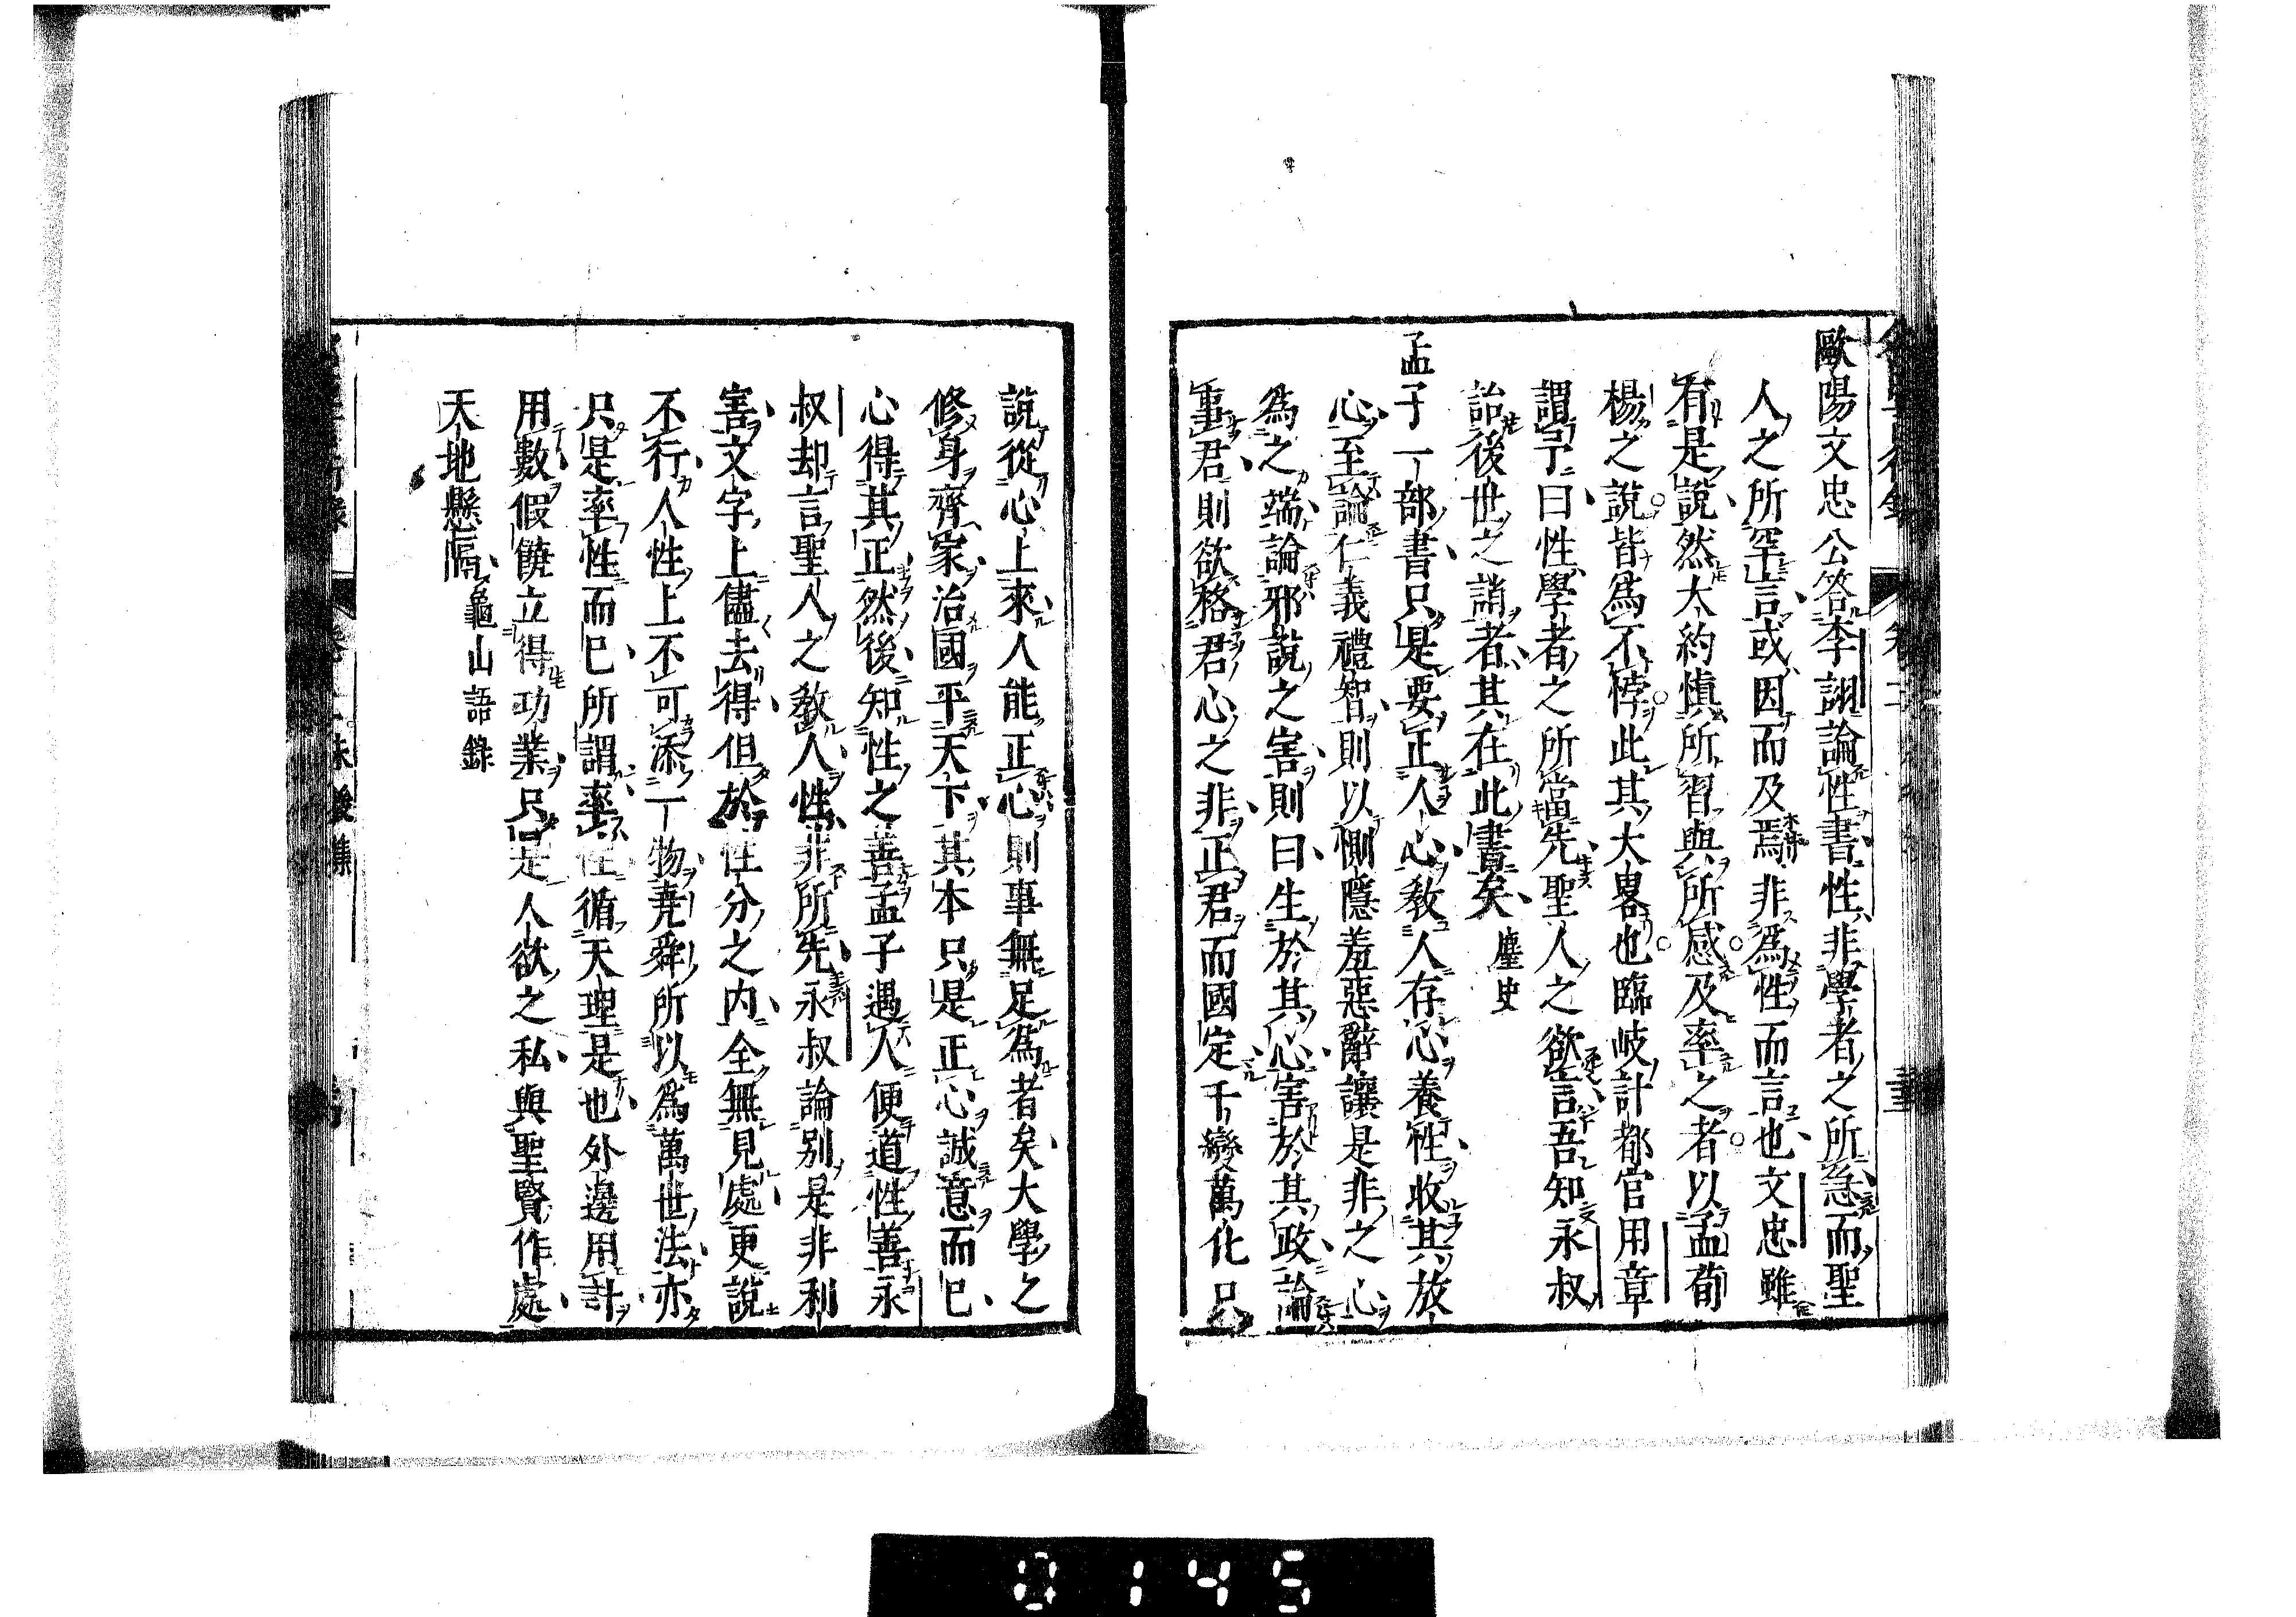 歐陽文忠公答李詡論性書性非學者之所急而聖
人之所罕言或因而及焉非爲性而言也文忠雖
有是説然大約慎所習與所感及率之者以孟荀
楊之説皆爲不悖此其大畧也臨岐計都官用章
謂予曰性學者之所當先聖人之欲言吾知永叔
詒後世之誚者其在此書矣 麈史
孟子一部書只是要正人心教人存心養性收其放
心至論仁義禮智則以惻隱羞惡辭讓是非之心
爲之端論邪說之害則曰生於其心害於其政論
事君則欲格君心之非正君而國定千變萬化只
說從心上來人能正心則事無足爲者矣大學之
修身齊家治國平天下其本只是正心誠意而已
心得其正然後知性之善孟子遇人便道性善永
叔却言聖人之教人性非所先永叔論別是非利
害文字上儘去得但於性分之內全無見處更說
不行人性上不可添一物堯舜所以爲萬世法亦
只是率性而已所謂率性循天理是也外邊用計
用數假饒立得功業只是人欲之私與聖賢作處
天地懸隔 龜山語錄
0145